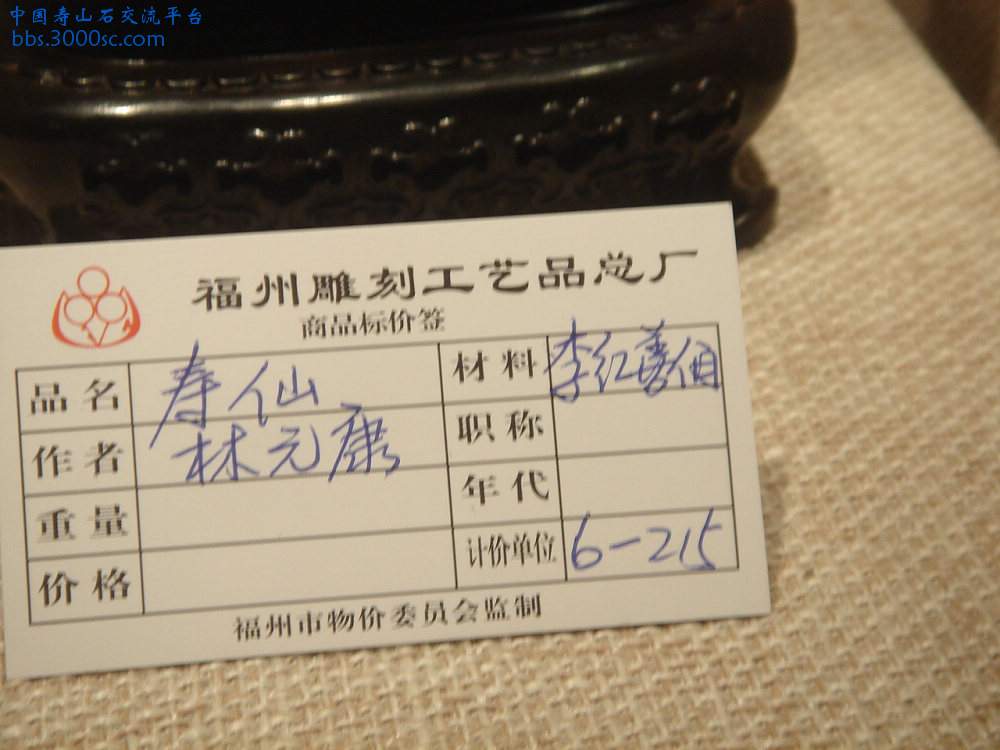 中国寿山石交流平台
bbs.3000sc.com
福州雕刻工艺品总厂
商品标价签
品名 寿仙 材料 李红善伯
作者 林元康 职称
重量 年代
价格 计价单位 6-215
福州市物价委员会监制